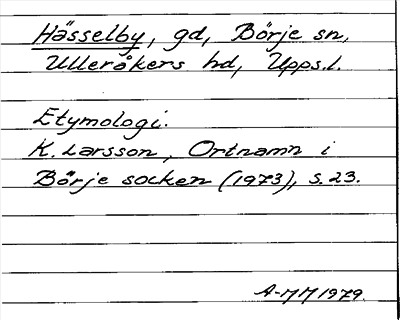 Hässelby, gd, Börje sn,
Ulleråkers hd, Upps.l.
Etymologi:
K. Larsson, Ortnamn i
Börje socken (1973), s. 23.
A-MM 1979.